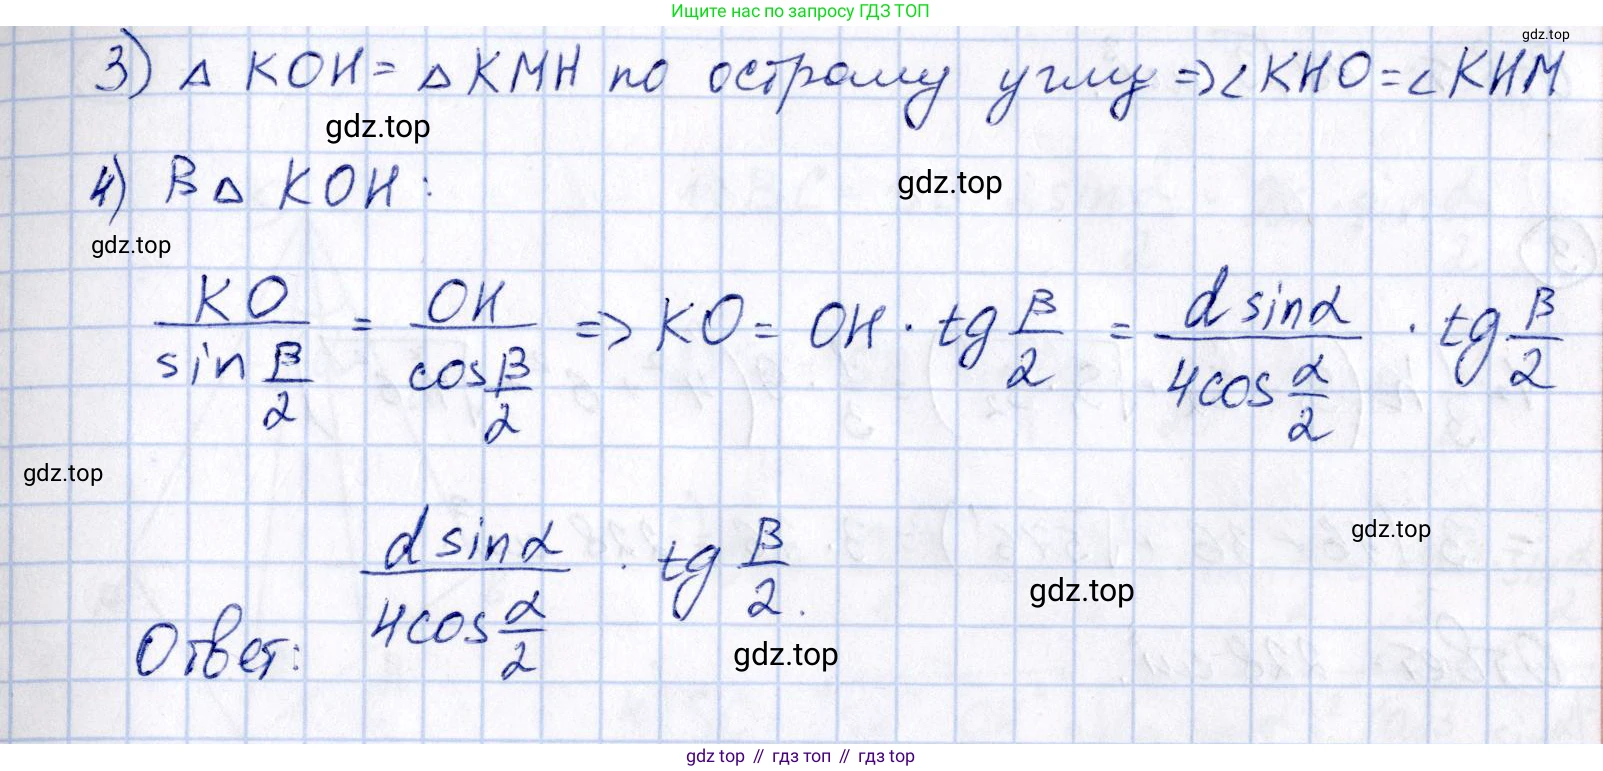 Ищите нас по запросу ГДЗ ТОП
gdz.top
3) △ KOH = △ KMH по острому углу ⇒ ∠KHO = ∠KHM
gdz.top
4) В △ KOH:
gdz.top
gdz.top
KO / sin β/2 = OH / cos β/2 ⇒ KO = OH · tg β/2 = d sinα / 4cos α/2 · tg β/2
gdz.top
gdz.top
Ответ: d sinα / 4cos α/2 · tg β/2.
gdz.top
gdz.top
gdz top // гдз топ // гдз top